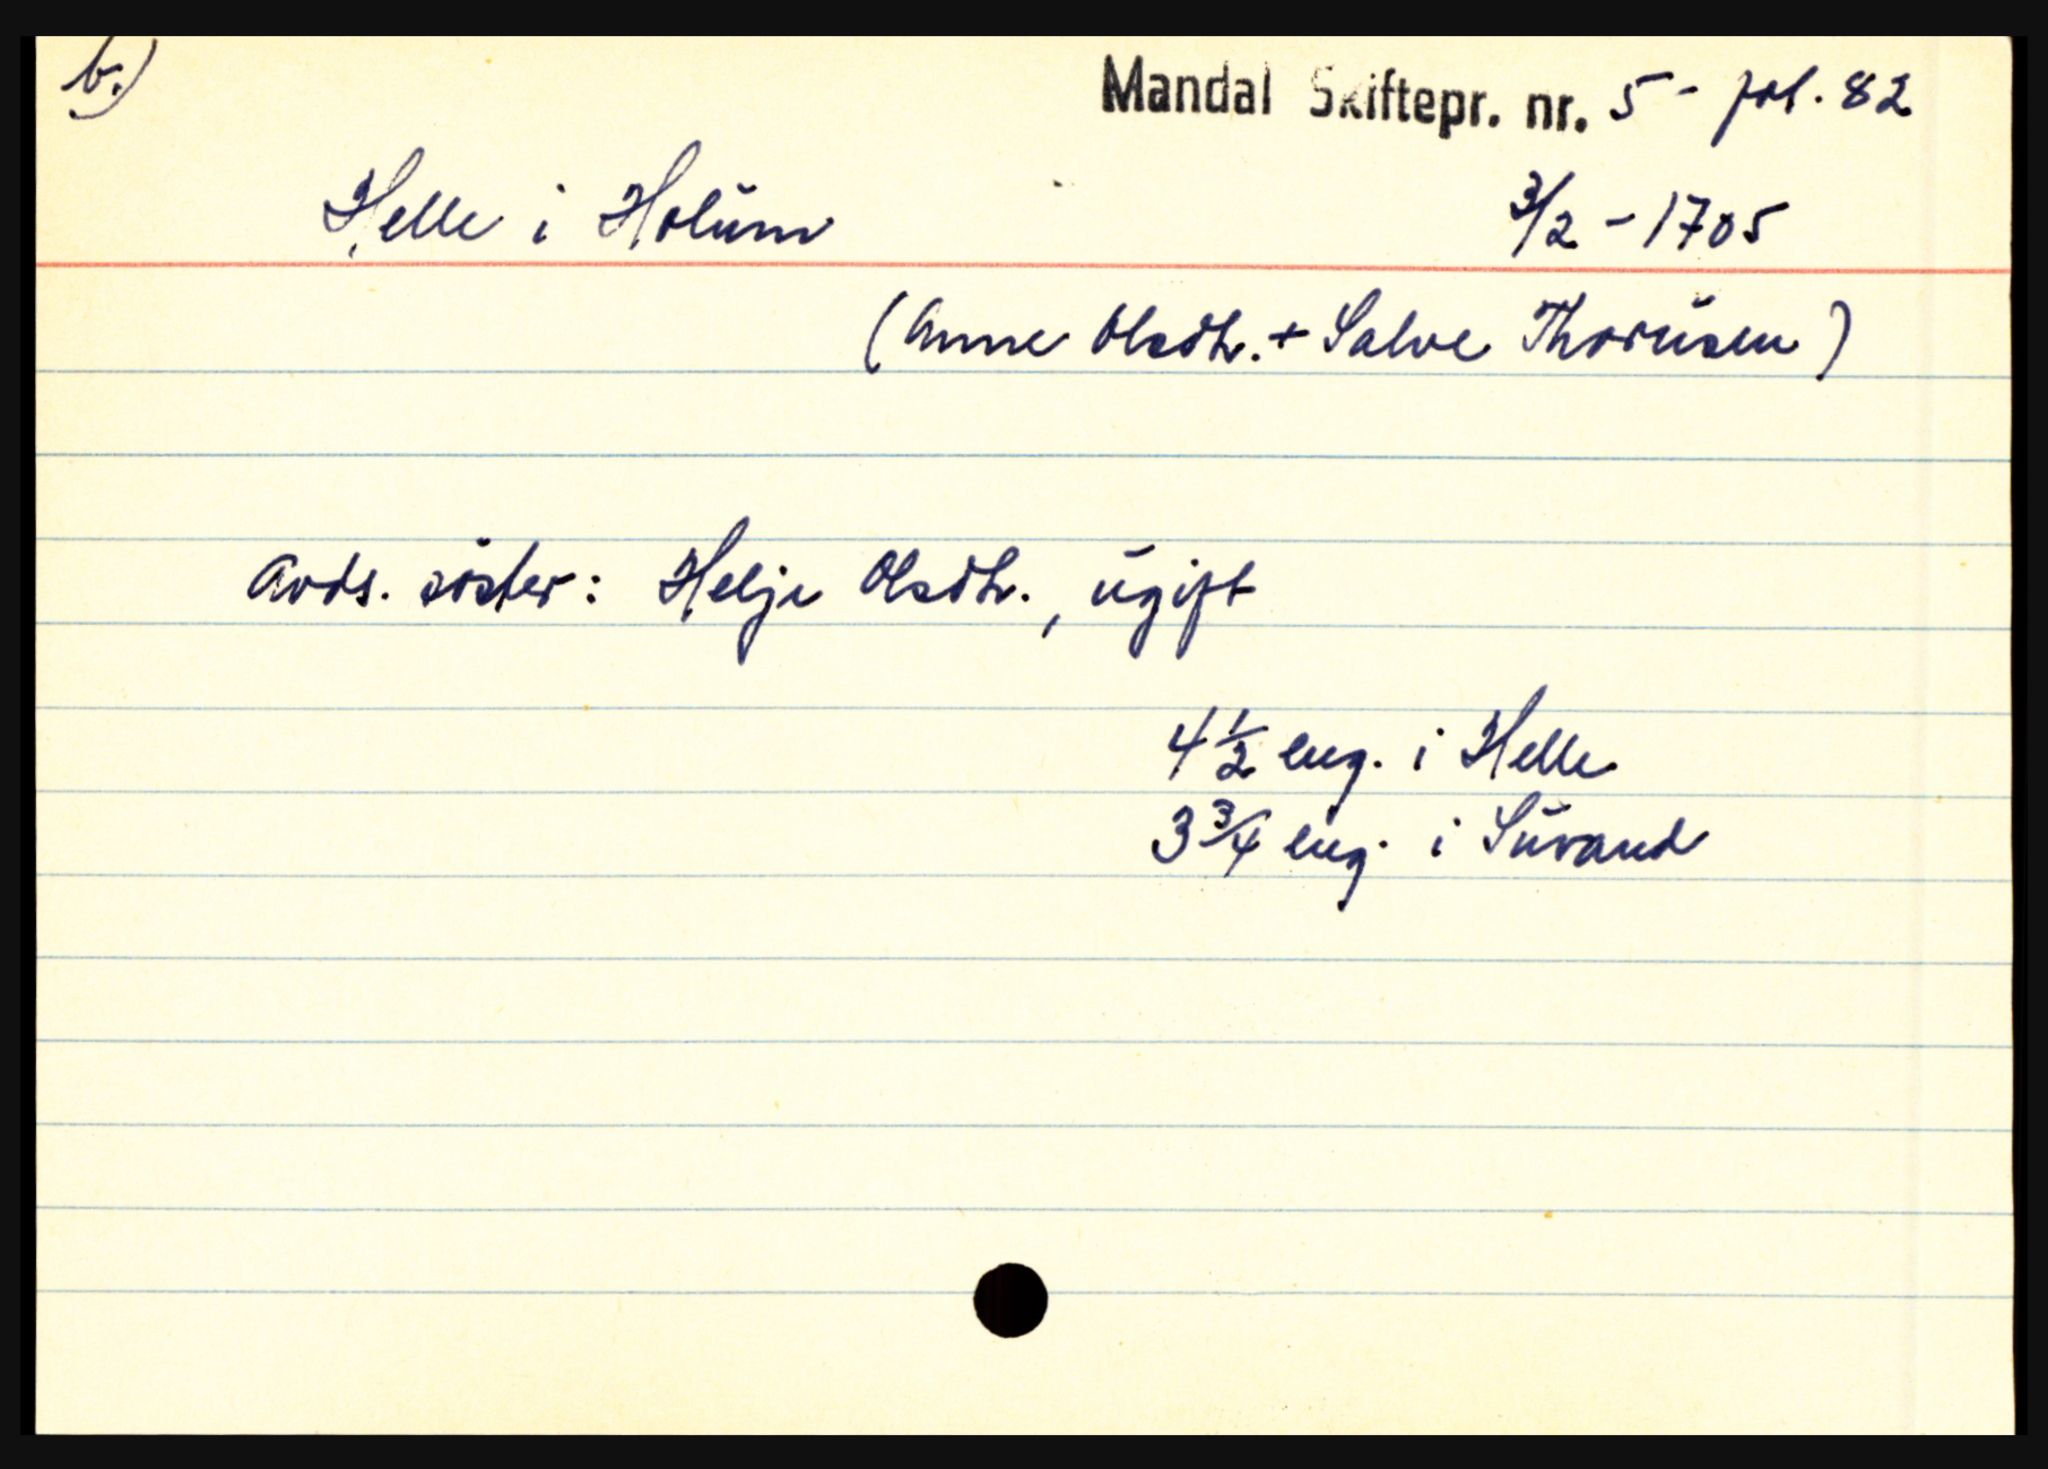 b.)
Mandal Skiftepr. nr. 5 - fol. 82
Helle i Holum 3/2 - 1705
(Anne Olsdtr. + Salve Thorusen)
Avds. søster: Helje Olsdtr., ugift
4 1/2 eng. i Helle
3 3/4 eng. i Suvand